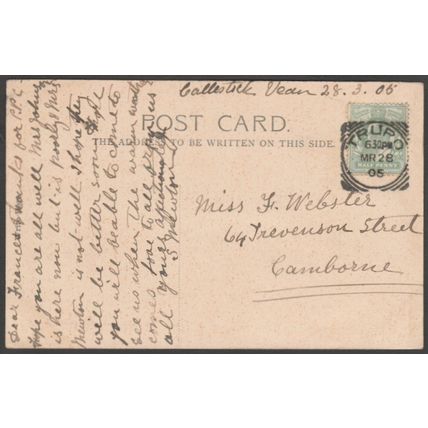 Callestick Vean 28.3.05
POST CARD.
THE ADDRESS TO BE WRITTEN ON THIS SIDE.
TRURO
6.30PM
MR 28
05
HALF PENNY
Miss F. Webster
64 Trevenson Street
Camborne
Dear Frances Thanks for P.P.C.
hope you are all well Mrs John
is here now but is poorly & Mrs
Newton is not well I hope they
will be better soon. Hope
you will be able to come to
see us when the warm weather
comes love to all from us
all yours affectionately